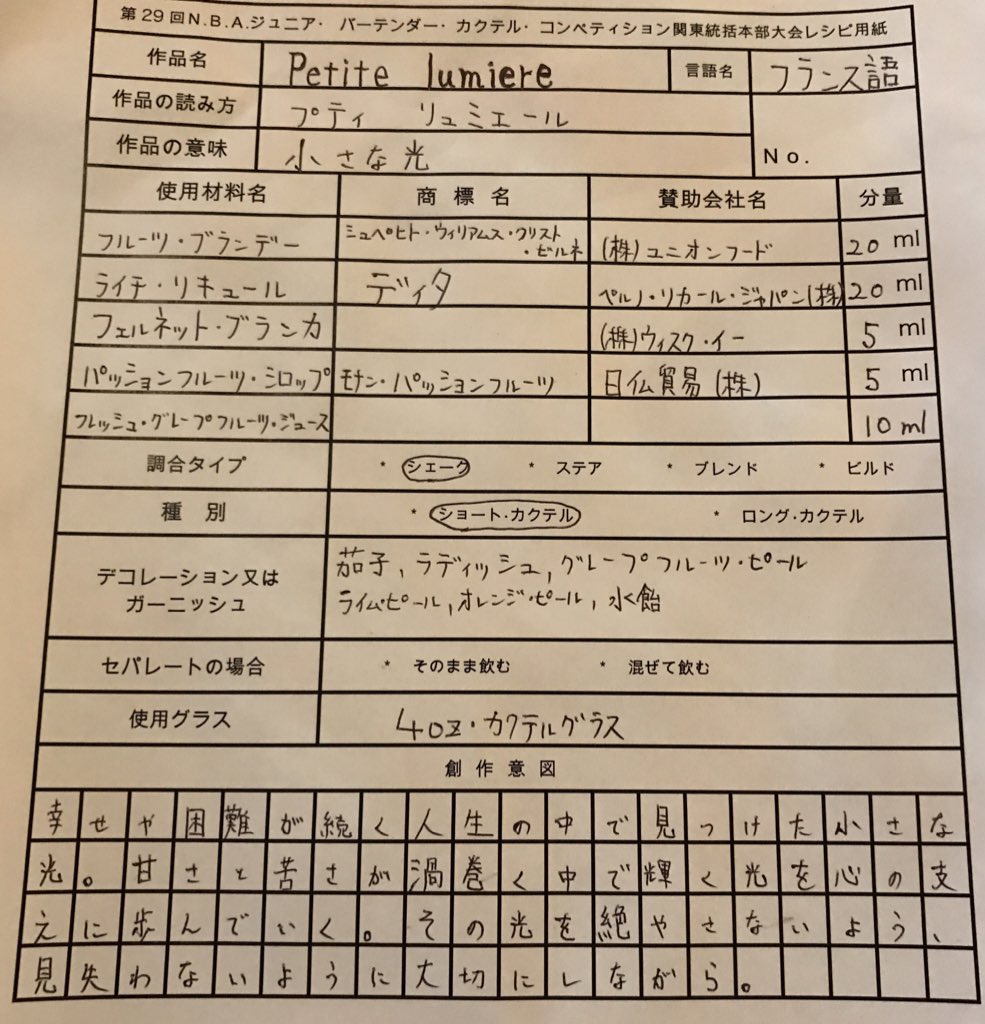 第29回N.B.A.ジュニア・バーテンダー カクテル・コンペティション関東統括本部大会レシピ用紙
作品名 Petite lumiere 言語名 フランス語
作品の読み方 プティ リュミエール
作品の意味 小さな光 No.
使用材料名 商標名 賛助会社名 分量
フルーツ・ブランデー シュペヒト・ウィリアムス・クリスト・ビルネ (株)ユニオンフード 20 ml
ライチ・リキュール ディタ ペルノ・リカール・ジャパン(株) 20 ml
フェルネット・ブランカ (株)ウィスク・イー 5 ml
パッションフルーツ・シロップ モナン・パッションフルーツ 日仏貿易(株) 5 ml
フレッシュ・グレープフルーツ・ジュース 10 ml
調合タイプ * シェーク * ステア * ブレンド * ビルド
種別 * ショート・カクテル * ロング・カクテル
デコレーション又はガーニッシュ 茄子, ラディッシュ, グレープフルーツ・ピール
ライム・ピール, オレンジ・ピール, 水飴
セパレートの場合 * そのまま飲む * 混ぜて飲む
使用グラス 4oz・カクテルグラス
創作意図
幸せや困難が続く人生の中で見つけた小さな
光。甘さと苦さが渦巻く中で輝く光を心の支
えに歩んでいく。その光を絶やさないよう、
見失わないように大切にしながら。